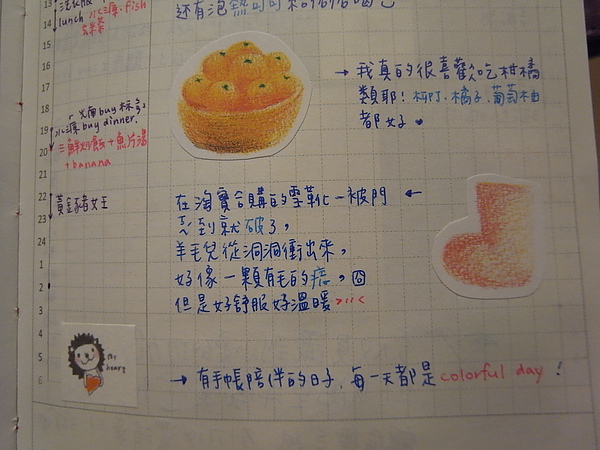 還有泡熱可可來
lunch 水餃·fish
→ 我真的很喜歡吃柑橘
類耶!柳丁、橘子、葡萄柚
都好
buy dinner.
=鮮炒飯+魚片湯
+banana
黃金豬女王
在淘寶合購的雪靴一被門
丟到就破了,
羊毛兒從洞洞衝出來,
好像一顆有毛的痣,囧
但是好舒服好溫暖>///<
My
heary
→ 有手帳陪伴的日子、每一天都是colorful day !
13
14
15
16
17
18
19
20
21
22
23
24
1
2
3
4
5
6